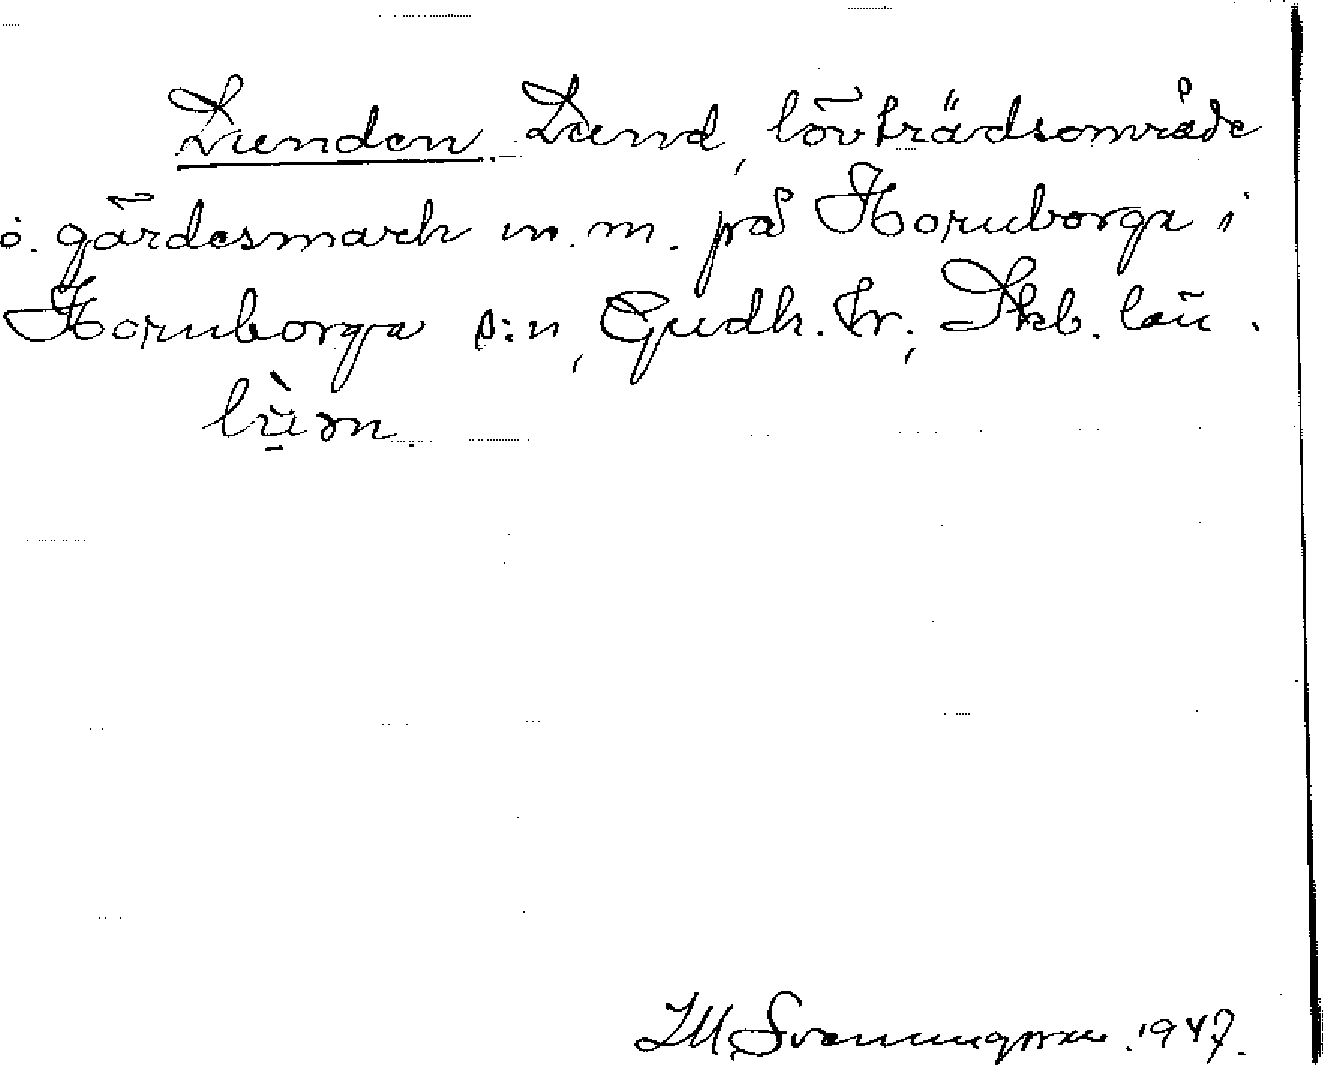 Lunden. Lund, lövträdsområde
o. gärdesmark m. m. på Hornborga i
Hornborga s:n, Gudh. hr, Skb. län.
Svenningsson. 1947.